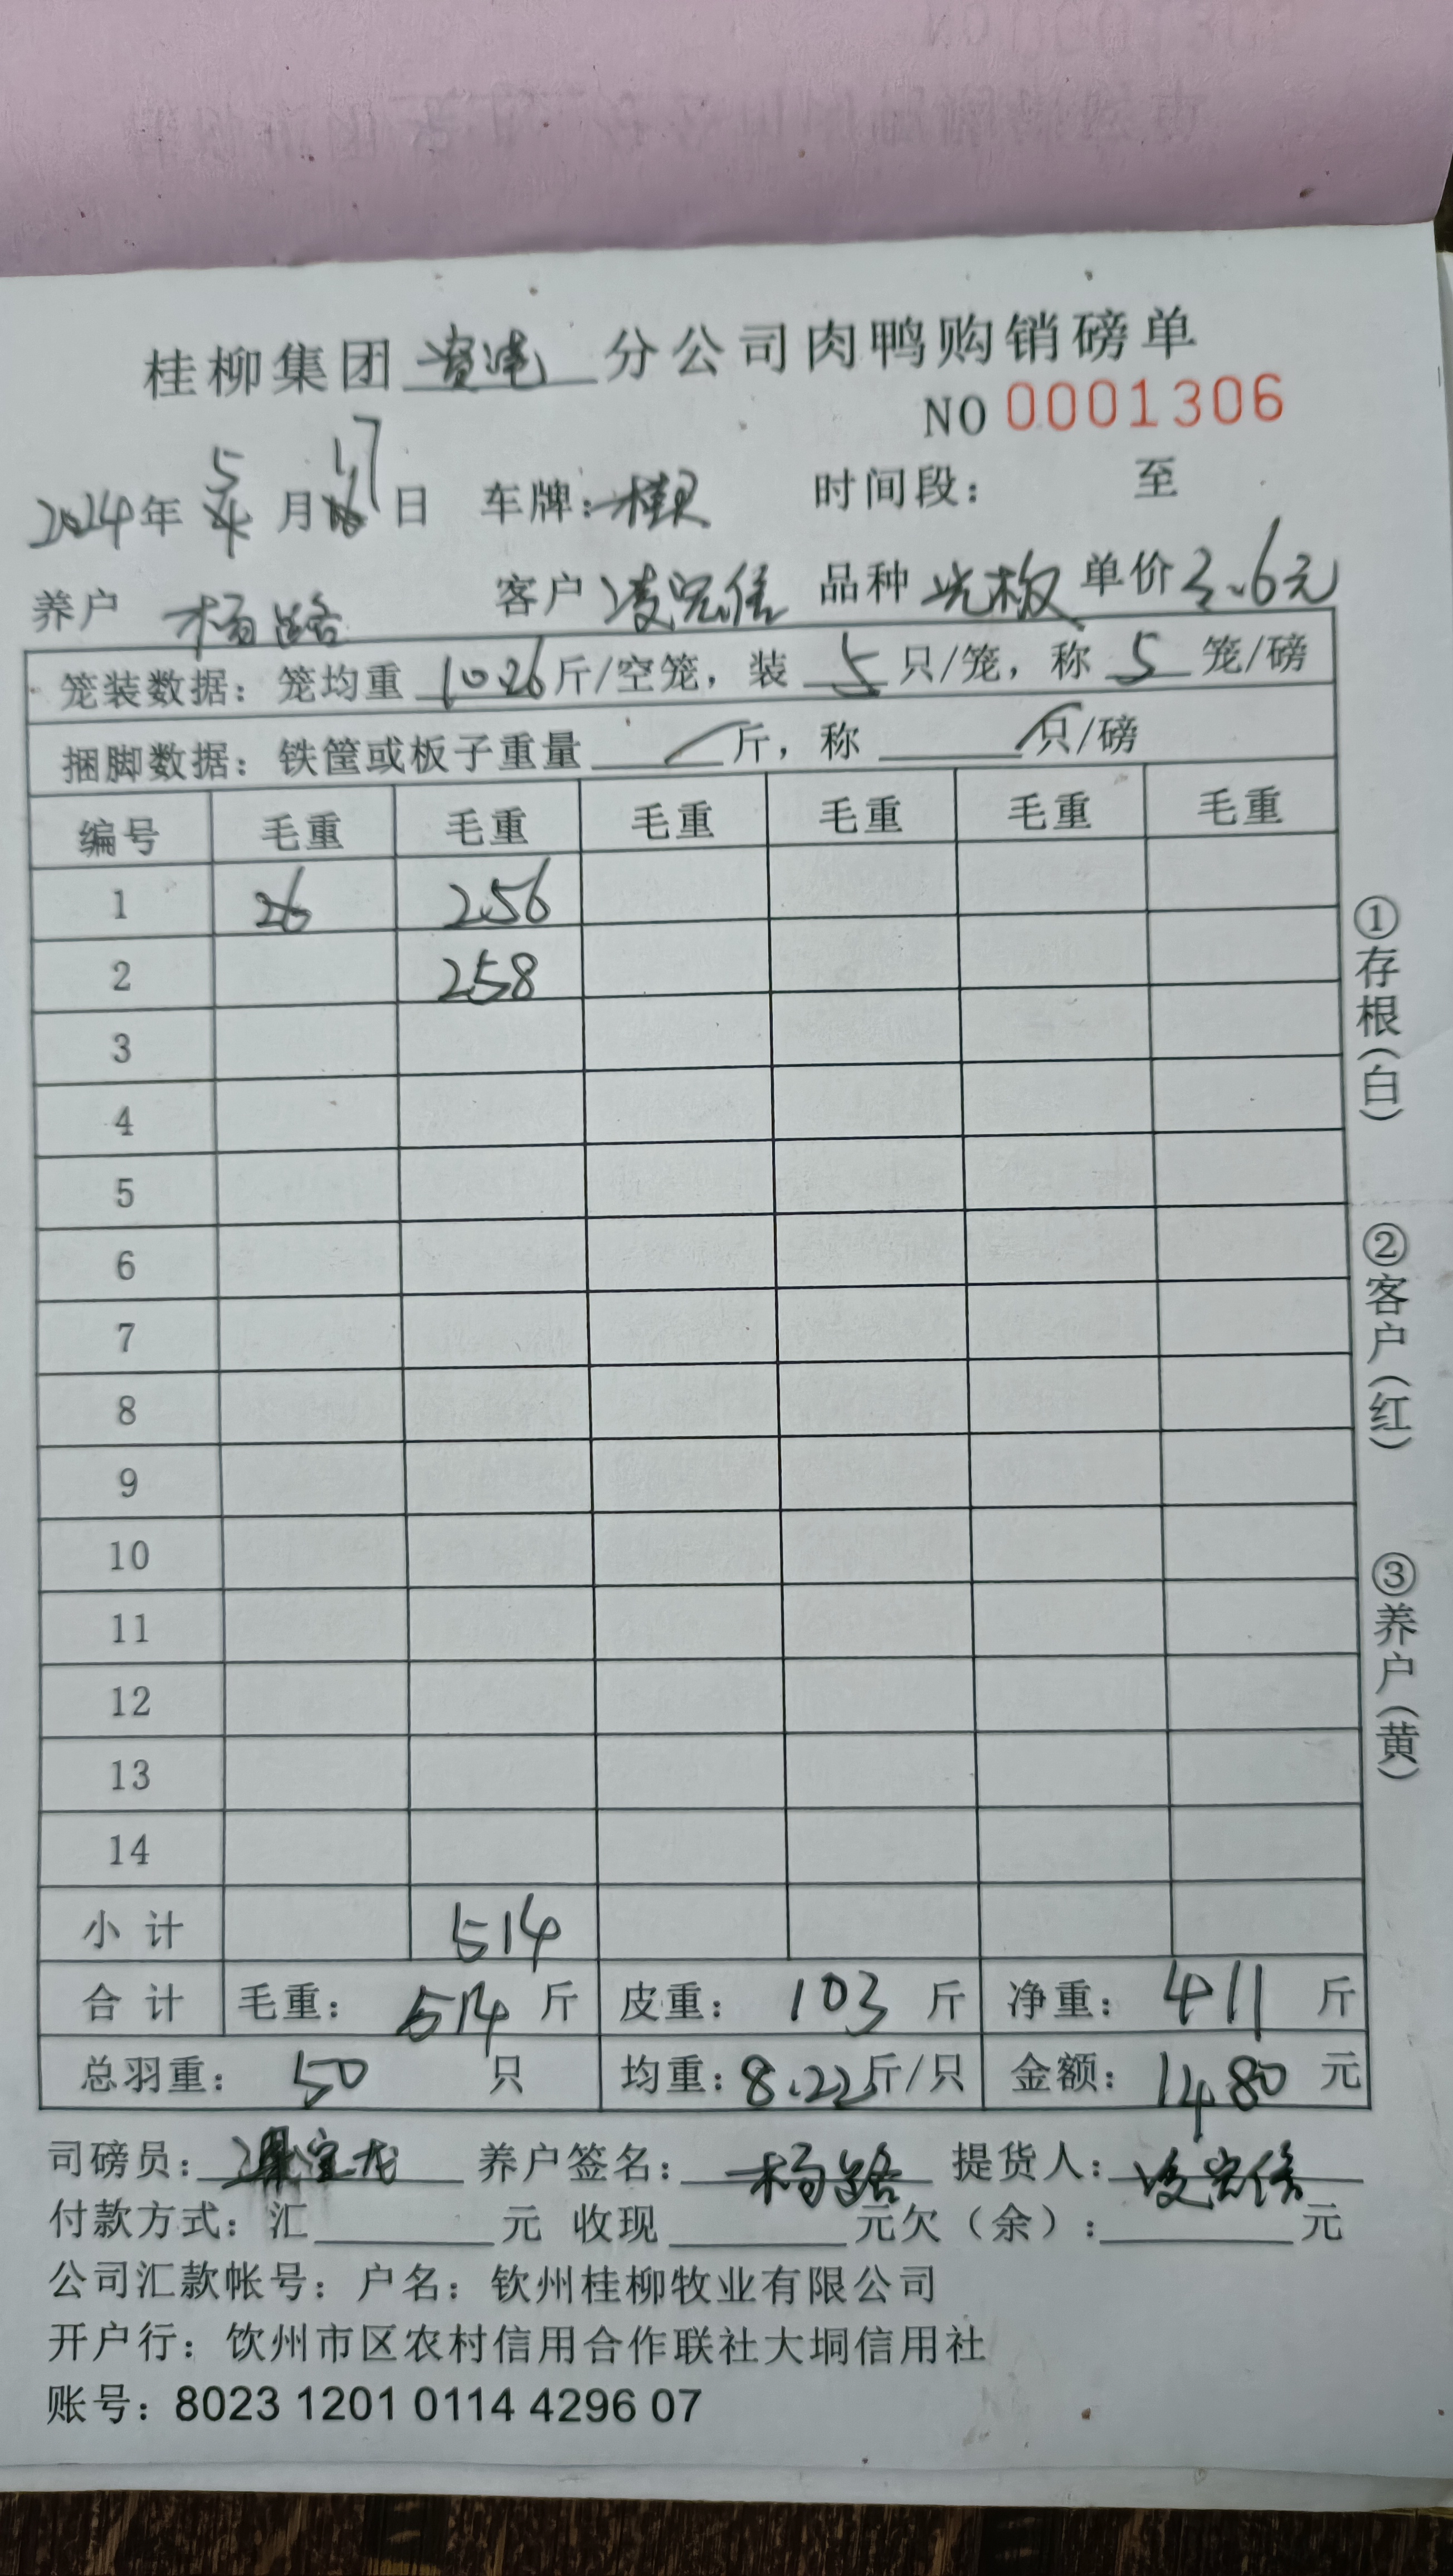 桂柳集团 分公司肉鸭购销磅单
NO 0001306
2024年 5 月 17 日 车牌: 桂 时间段: 至
养户 杨路 客户 凌宏信 品种 光板 单价 3.6元
笼装数据: 笼均重 10.26 斤/空笼, 装 5 只/笼, 称 5 笼/磅
捆脚数据: 铁筐或板子重量 / 斤, 称 / 只/磅
编号 毛重 毛重 毛重 毛重 毛重 毛重
1 26 256
2 258
3
4
5
6
7
8
9
10
11
12
13
14
小 计 514
合 计 毛重: 514 斤 皮重: 103 斤 净重: 411 斤
总羽重: 50 只 均重: 8.22 斤/只 金额: 1480 元
司磅员: 宝龙 养户签名: 杨路 提货人: 凌宏信
付款方式: 汇 元 收现 元欠(余): 元
公司汇款帐号: 户名: 钦州桂柳牧业有限公司
开户行: 饮州市区农村信用合作联社大垌信用社
账号: 8023 1201 0114 4296 07
①存根(白)
②客户(红)
③养户(黄)